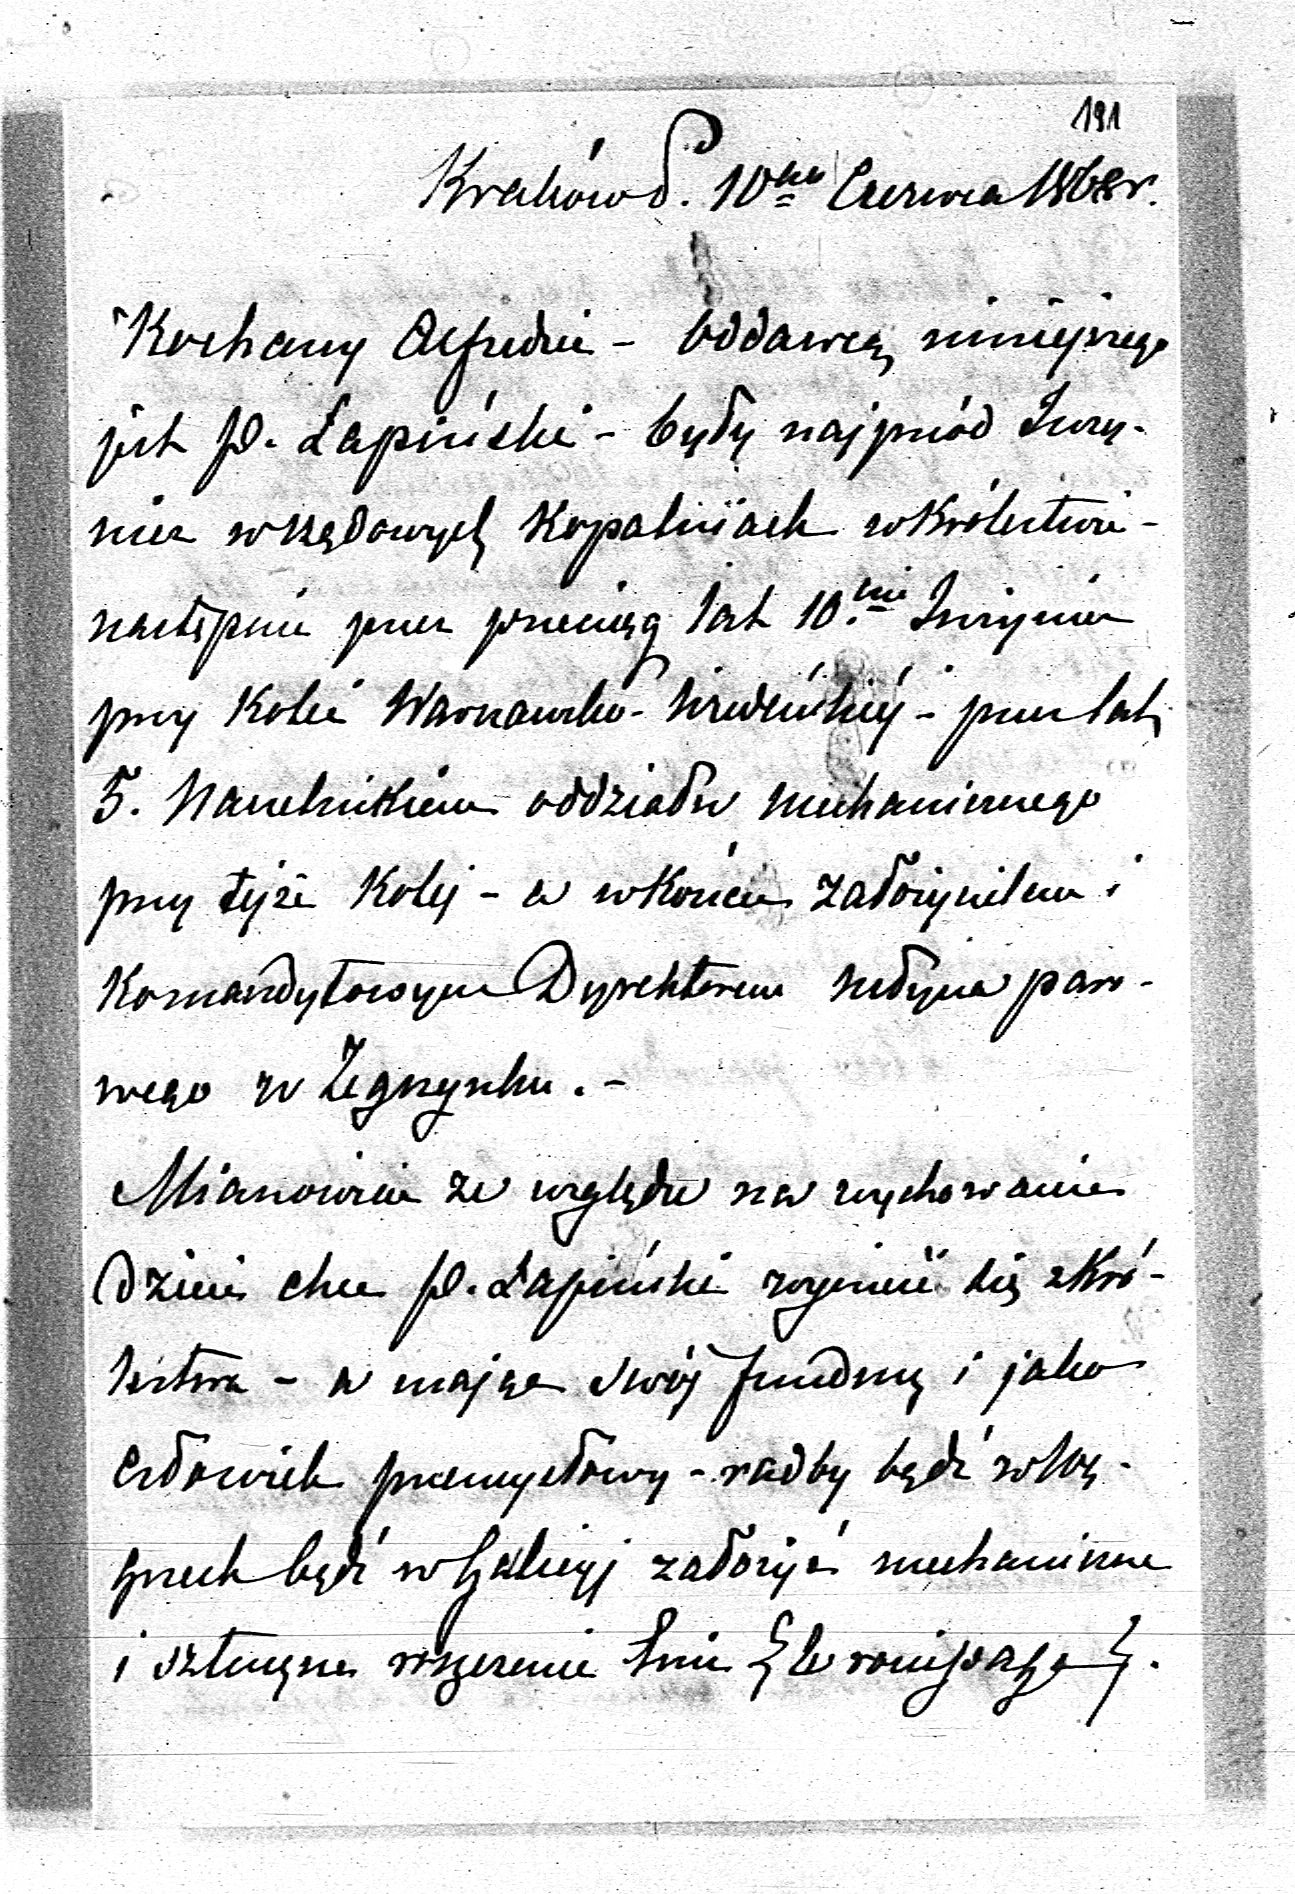 191
Kraków d. 10go Czerwca 1868 r.
Kochany Alfredzie - oddawcą niniejszego
jest p. Łapiński - były najprzód Inży-
nier w rządowych Kopalniach w Królestwie -
następnie przez przeciąg lat 10.ciu Inżynier
przy Kolei Warszawsko-Wiedeńskiéj - przez lat
5. Naczelnikiem oddziału mechanicznego
przy tejże Kolej - a w końcu założycielem i
Komandytowym Dyrektorem młyna paro-
wego w Zegrzynku. -
Mianowicie ze względu na wychowanie
Dzieci chce p. Łapiński wynieść się z Kró-
lestwa - a mając swój fundusz i jako
człowiek przemysłowy - radby bądź w Wę-
grzech bądź w Galicyj założyć mechaniczne
i sztuczne roszenie lnu